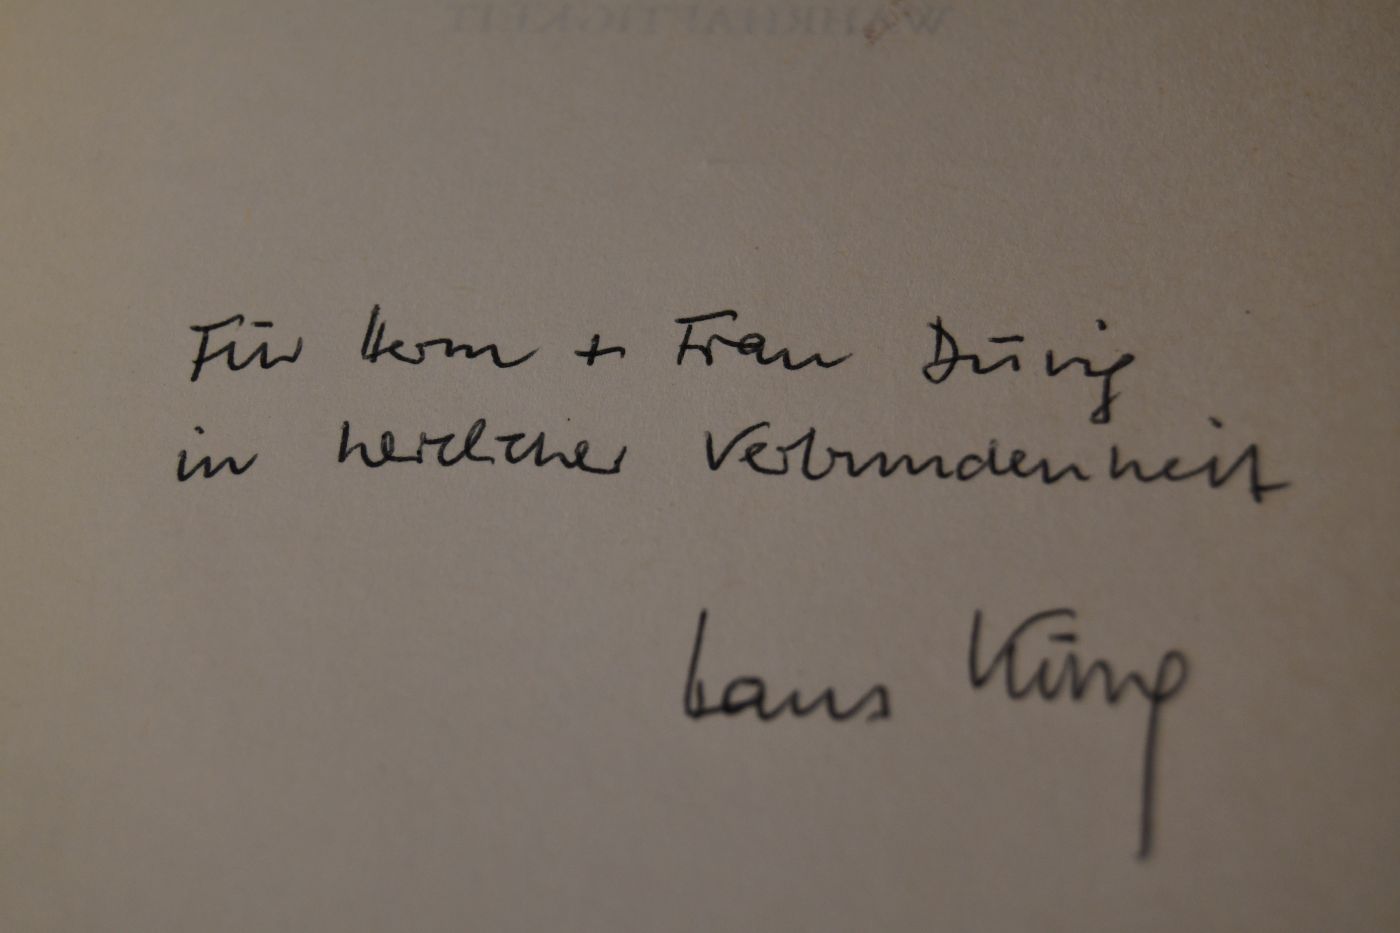 WAHRHAFTIGKEIT
Für Herrn + Frau Dürig
in herzlicher Verbundenheit
Hans Küng